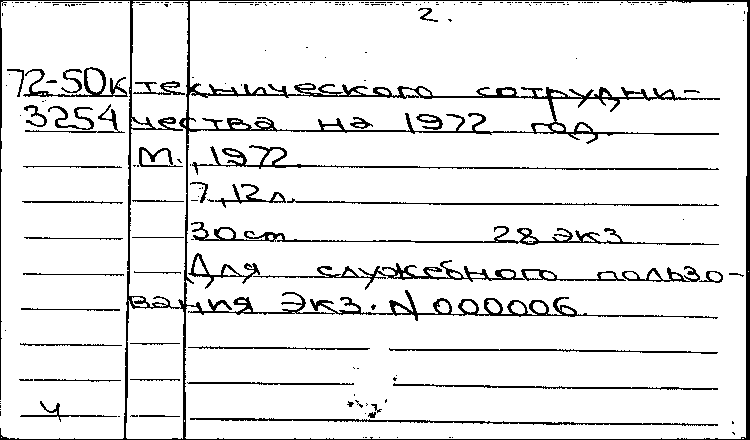 2.
72-50к технического сотрудни-
3254 чества на 1972 год.
М., 1972.
7,12 л.
30 см 28 экз
Для служебного пользо-
вания Экз. N 000006.
Ч